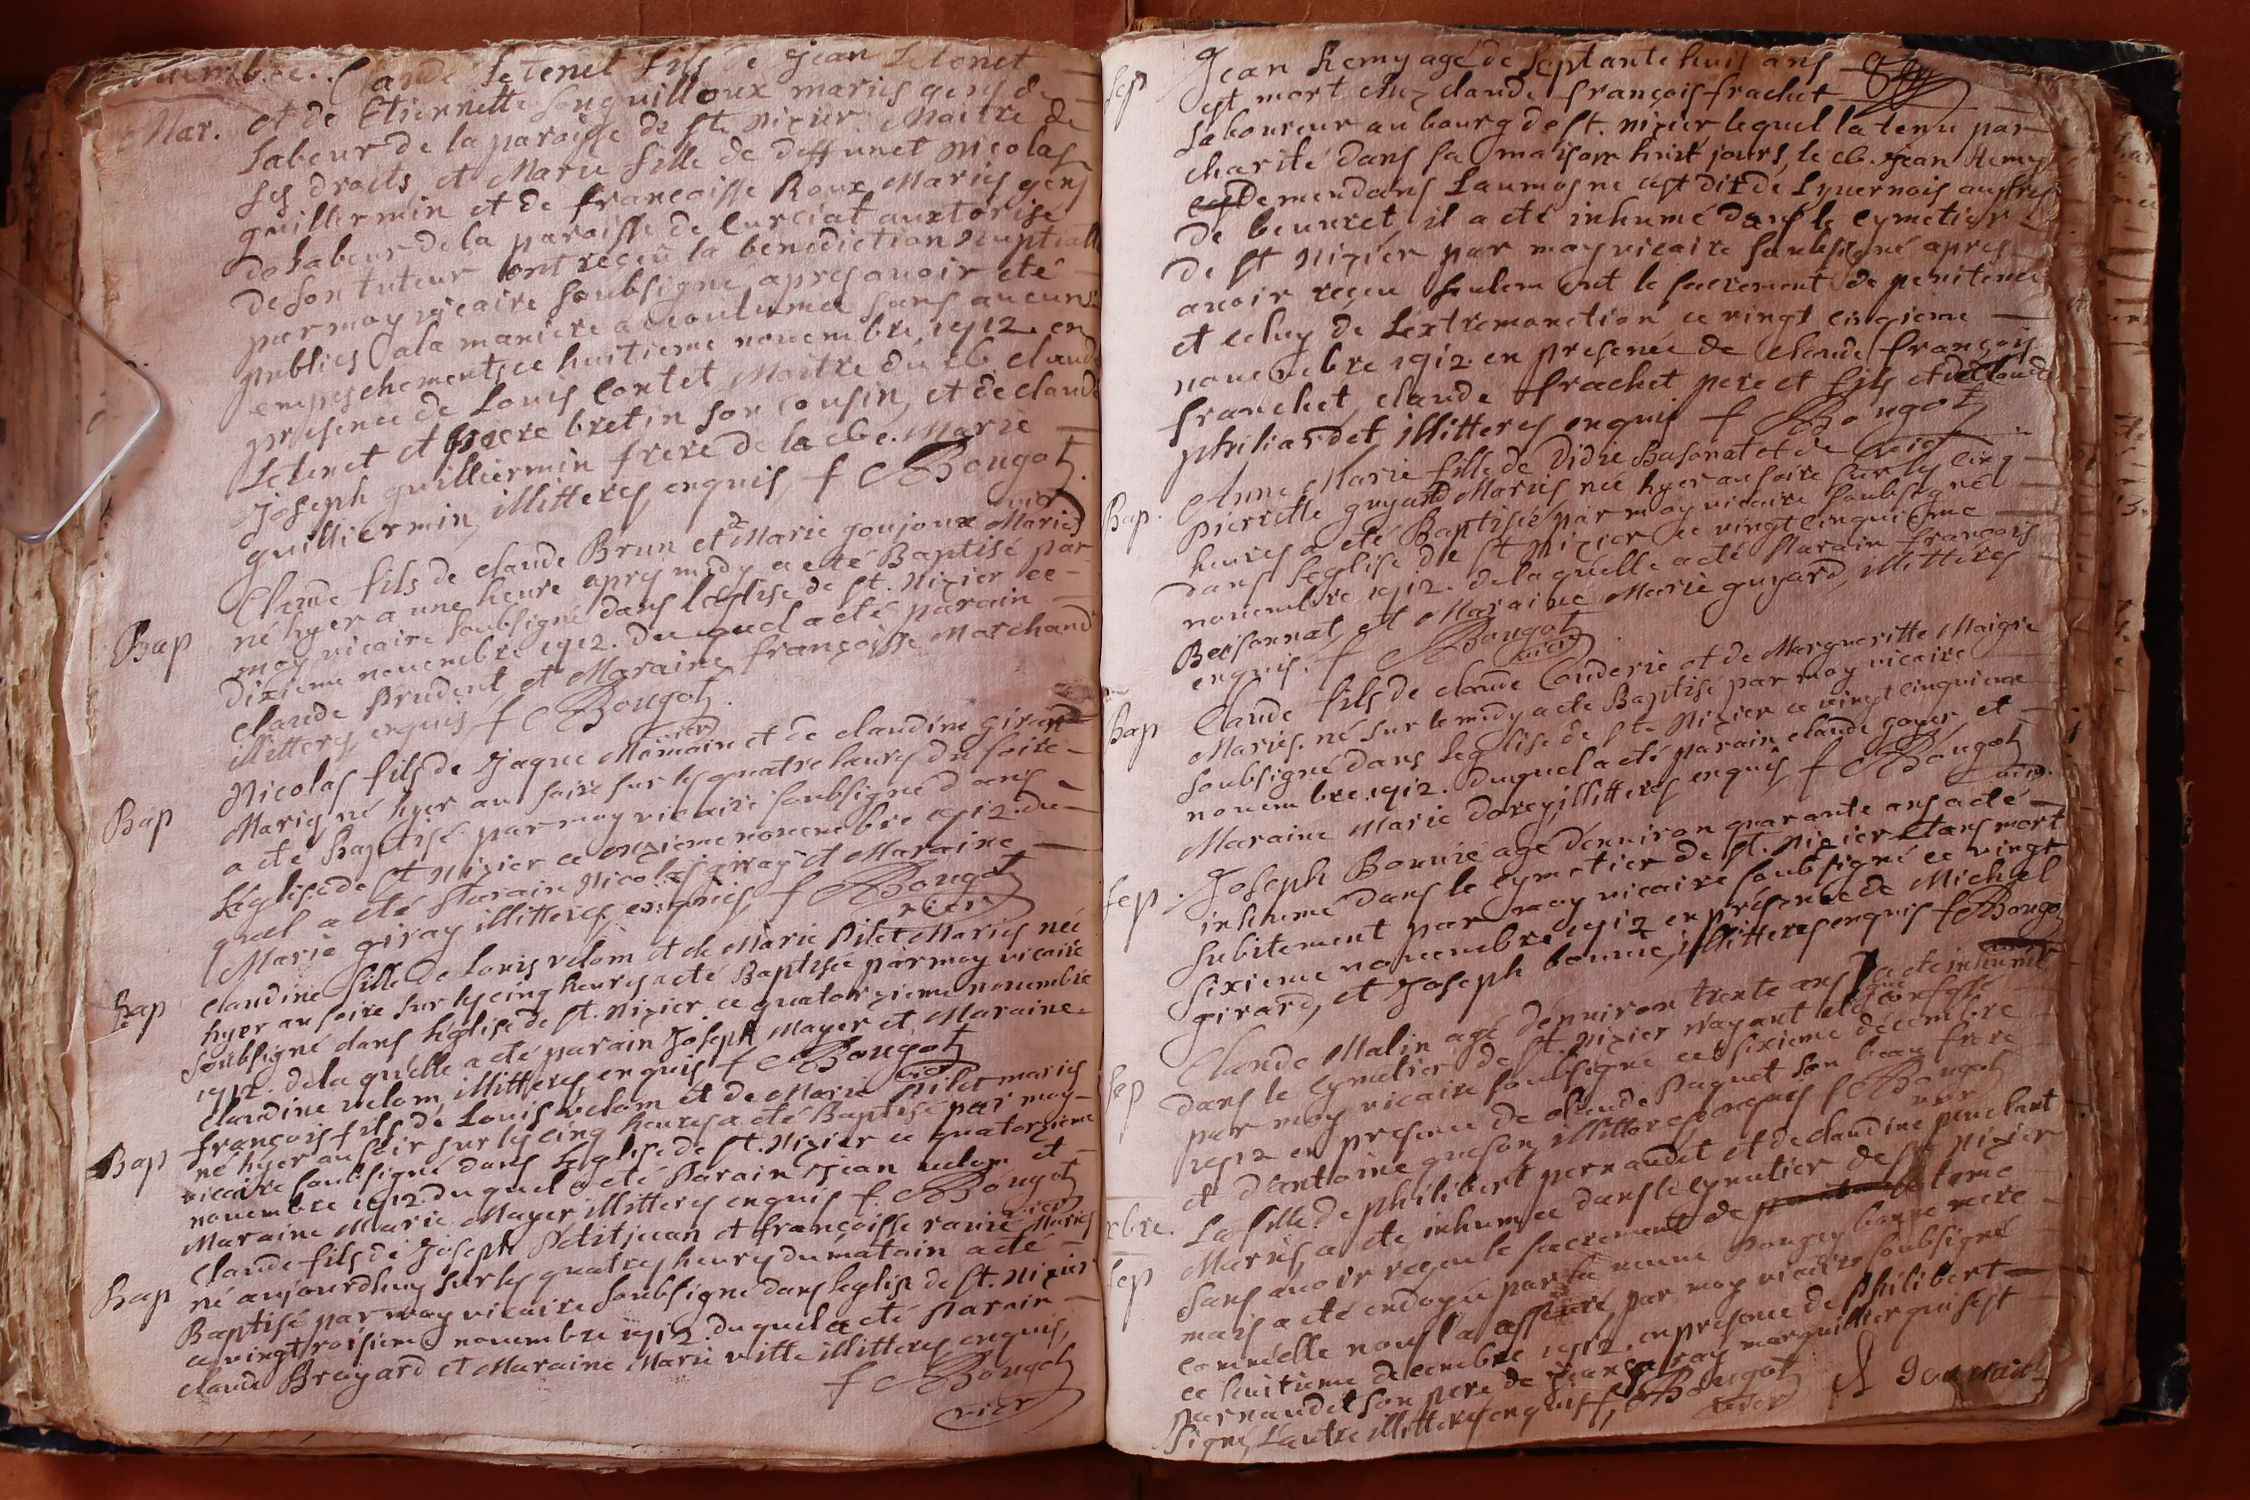 nouembre. Claude Letenet fils de Jean Letenet
Mar. et de Etiennette Songuilloux maries gens de
Labeur de la paroisse de St. Nizier Maitre de
ses droits et Marie fille de deffunct Nicolas
guillermin et de francoisse Roux Maries gens
de Labeur de la paroisse de Curciat auxtorisé
de son tuteur ont reçeu la benediction Nuptialle
par moy vicaire soubsigné apres auoir eté
publies a la maniere accoutumée sans aucuns
empeschements, ce huitieme nouembre 1712. en
presence de Louis Contet Maitre du cb. claude
Letenet et pierre bretin son cousin, et de claude
Joseph guilliermin frere de la cbe. Marie
guilliermin, illitteres enquis f C Bougot
vier
Claude fils de claude Brun et de Marie goujoux Maries
Bap né hyer a une heure apres midy a eté Baptisé par
moy vicaire soubsigné dans l'eglise de St. Nizier ce
dixieme nouembre 1712. du quel a eté parain
claude Prudent et Maraine françoisse Marchand
illitteres enquis f C Bougot
vier
Nicolas fils de Jaque Momain et de claudine giraud
Bap Maries né hyer au soire sur les quatre heures du soire
a eté baptisé par moy vicaire soubsigné dans
l'eglise de St Nizier ce onzieme nouembre 1712. du
quel a eté Parain Nicolas giray et Maraine
Marie giray illitteres enquis f C Bougot
vier
Bap Claudine fille de Louis velom et de Marie Pilet Maries née
hyer au soire sur les cinq heures a eté Baptisée par moy vicaire
soubsigné dans l'eglise de St. Nizier. ce quatorzieme nouembre
1712. de la quelle a eté parain Joseph Mayer et Maraine
Claudine velom, illitteres enquis f C Bougot
vier
françois fils de Louis velom et de Marie Pilet maries
Bap né hyer au soir sur les cinq heures a eté Baptisé par moy
vicaire soubsigné dans l'eglise de St. Nizier ce quatorzieme
nouembre 1712. du quel a eté Parain Jean velom et
Maraine Marie Mayer illitteres enquis f C Bougot
vier
Claude fils de Joseph Petitjean et françoisse raviré Maries
Bap né aujourdhuy sur les quatres heures du matain a eté
Baptisé par moy vicaire soubsigné dans l'eglise de St. Nizier
ce vingt troisieme nouembre 1712. du quel a eté Parain
claude Brayard et Maraine Marie vitte illitteres enquis,
f C Bougot
vier
Sep Jean Remy agé de septante huit ans
est mort chez claude françois frachet
Laboureur au bourg de St. nizier lequel la tenu par
charité dans sa maison huit jours, le cb. Jean Remy
demendans Laumosne est dit de
de beuuret il a eté inhumé dans le cymetier
de St Nizier par moy vicaire soubsigné apres
auoir reçeu seulement le sacrement de penitence
et celuy de L'extremonction ce vingt cinqieme
nouembre 1712. en presence de claude françois
franchet, claude frachet pere et fils et de claude
philiardet, illitteres enquis f C Bougot
vier
Bap. Anne Marie fille de Didie Basonat et de
pierrette guyard Maries, née hyer au soire sur les cinq
heures a eté Baptisée par moy vicaire soubsigné
dans l'eglise de St Nizier ce vingt cinquieme
nouembre 1712. de la quelle a eté Parain françois
Bessonnat, et Maraine Marie guyard, illitteres
enquis. f C Bougot
vier
Bap Claude fils de claude Conderie et de Margueritte Maigre
Maries. né sur le midy a eté Baptisé par moy vicaire
soubsigné dans L'eglise de St. Nizier ce vingt cinquieme
nouembre 1712. duquel a eté parain claude goyer, et
Maraine Marie dorey, illitteres enquis f C Bougot
vier
Sep. Joseph Bonnié agé denuiron quarante ans a eté
inhumé dans le cymetier de St. Nizier etans mort
subitement par moy vicaire soubsigné ce vingt
sixieme nouembre 1712 en presence de Michel
girard, et Joseph bonnié, illitteres enquis f C Bougot
vier
Claude Malin agé denuiron trente ans a eté inhumé
Sep dans le cymetier de St. Nizier n'ayant eté que confessé
par moy vicaire soubsigné ce sixieme décembre
1712 en presence de claude Paquet son beau frere
et d'antoine queson, illitteres enquis f C Bougot
vier
rbre. La fille de philibert pernaudet et de claudine penchant
Sep Maries, a eté inhumée dans le cymetier de St Nizier
sans auoir reçeu le sacrement de bateme
mais a eté endoyée par la veuue Pongey bonne mere
comme elle nous la assuré, par moy vicaire soubsigné
ce huitieme decembre 1712. en presence de Philibert
parnaudet son pere de Jean garay marguillier qui s'est
signé, L'autre illitteres enquis f C Bougot
vier